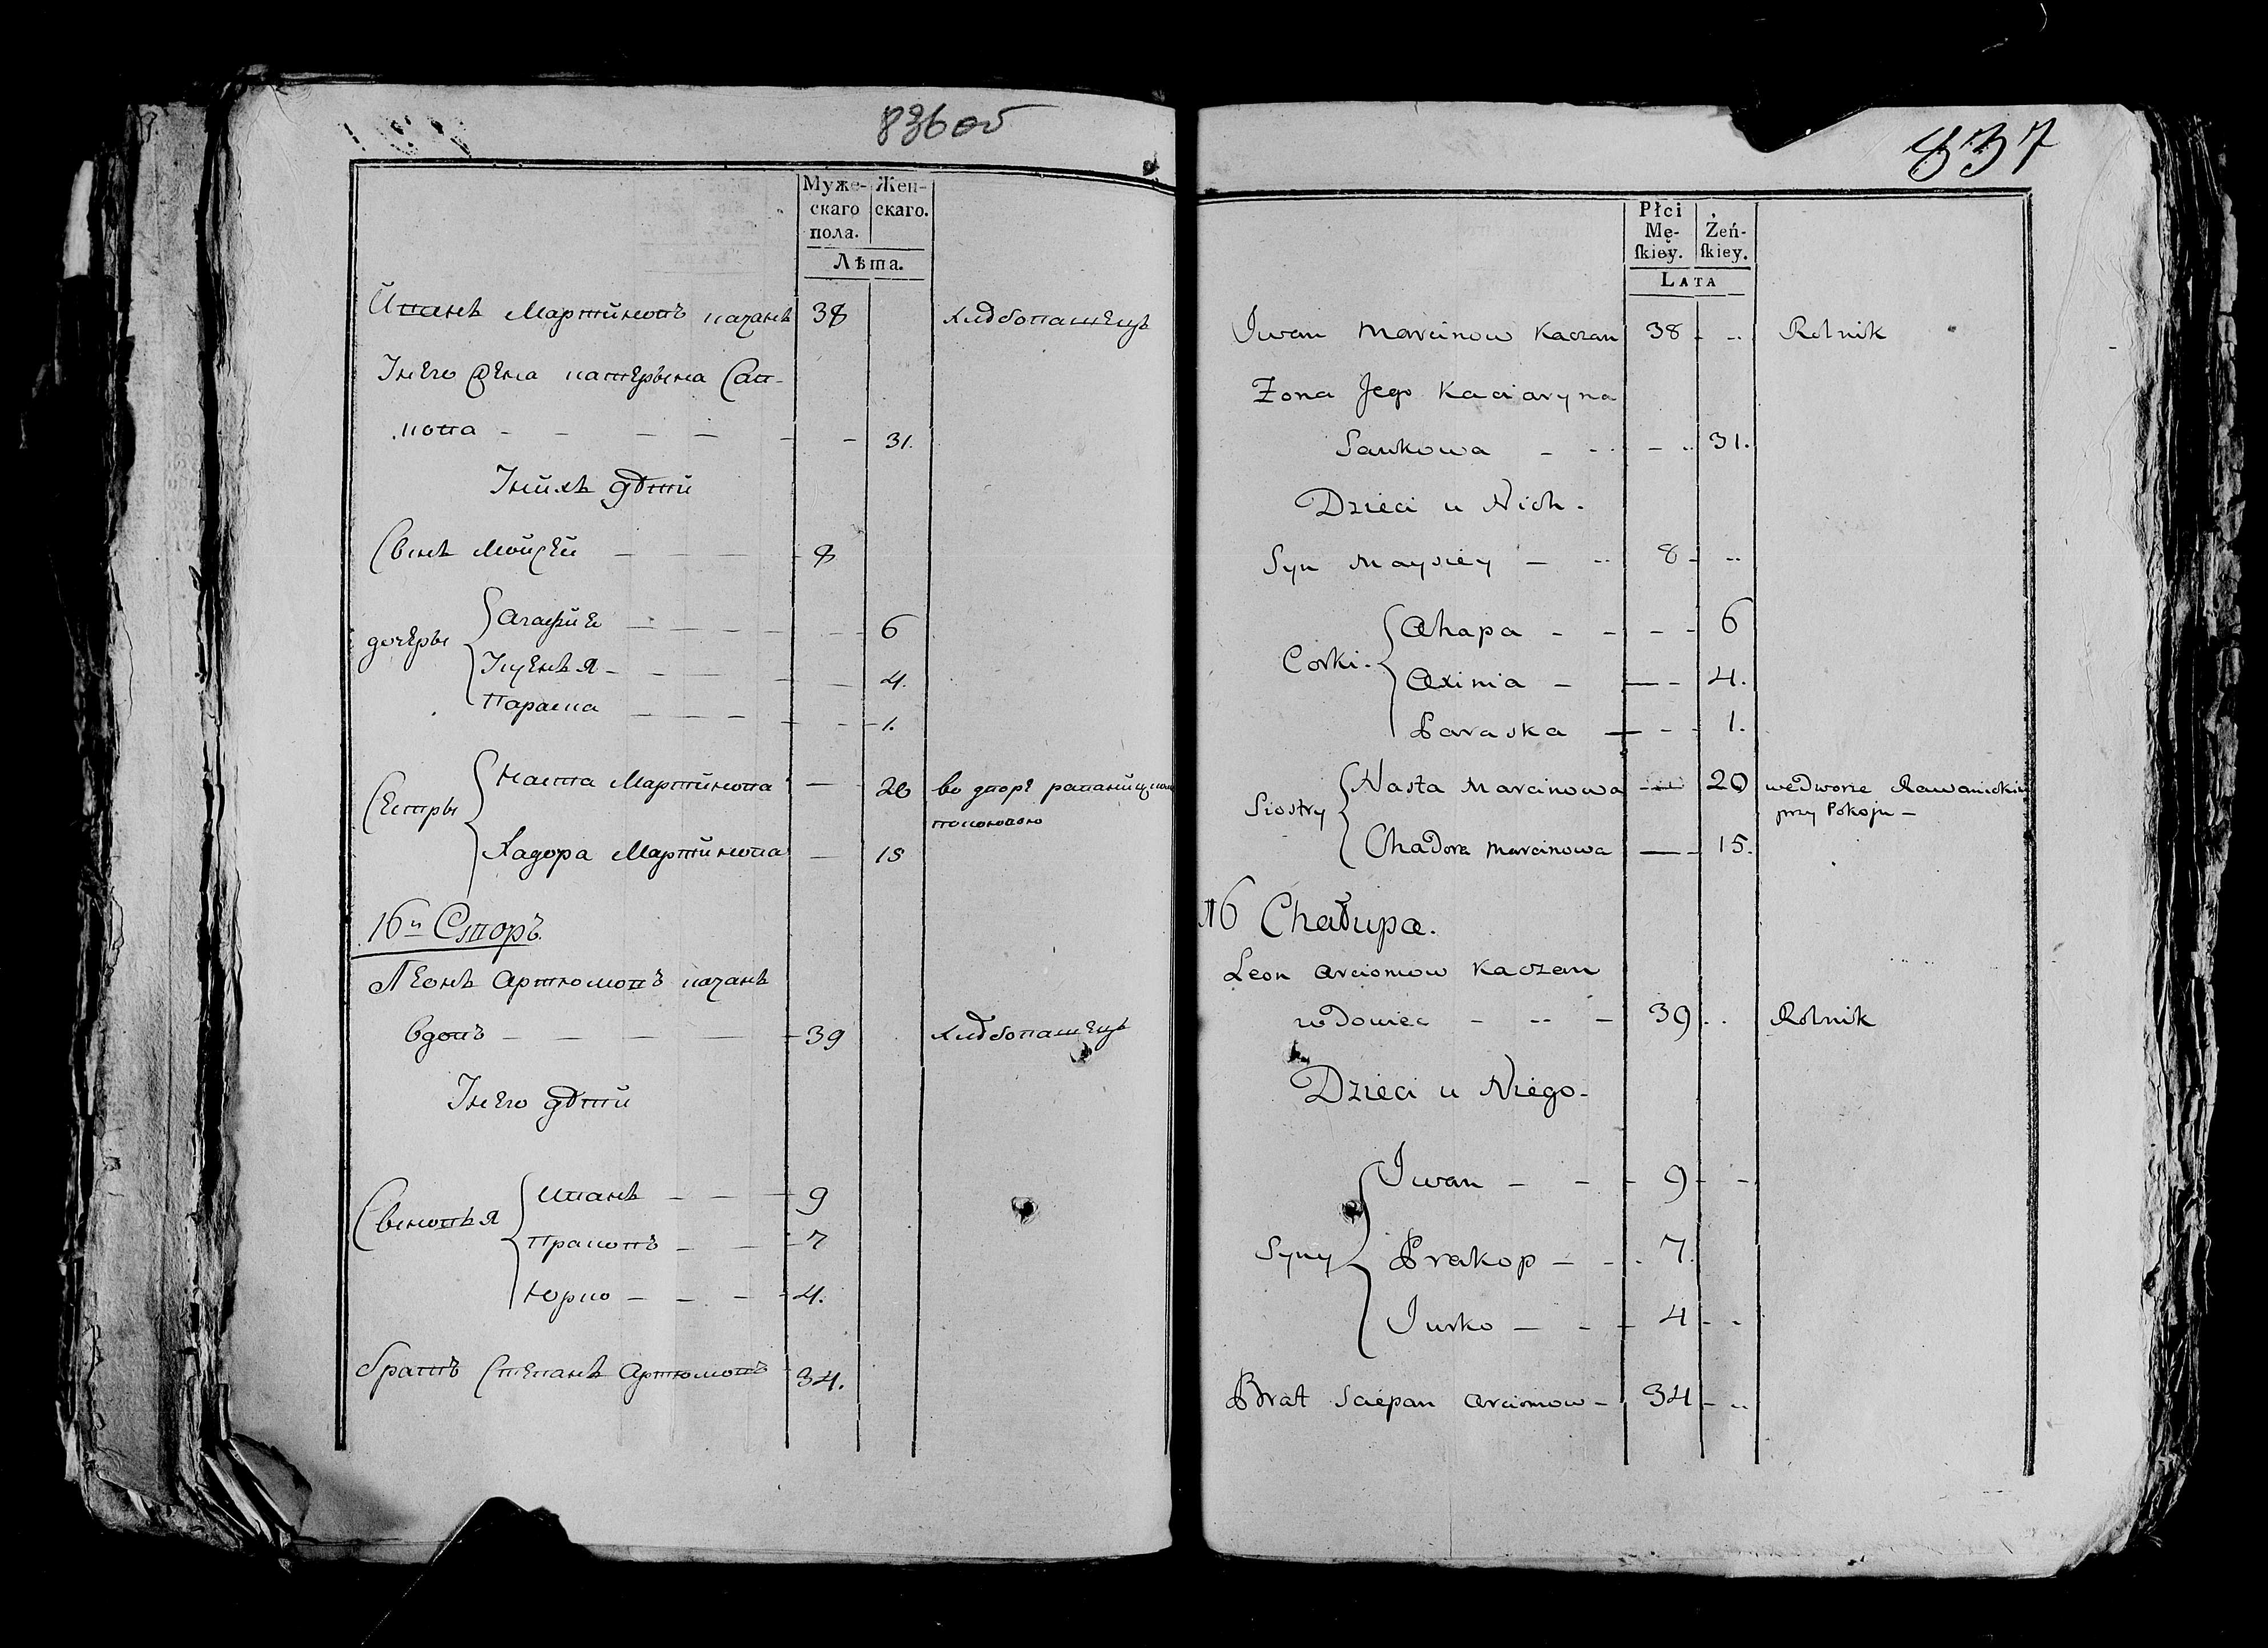 836 об
Муже- Жен-
скаго скаго.
пола.
Лѣта.
Иванъ Мартиновъ качанъ 38 хлѣбопашецъ
Унего жена катерына Сав-
кова — — — — — — 31.
Унихъ дѣти
Сынъ Мойсей — — — — 8
дочеры Агафие — — — — — 6
Кценья — — — — — 4.
Параска — — — — — 1.
Сестры Наста Мартинова — 20 во дворе раваницком
покоювою
Хадора Мартинова — 15
16й Створъ.
Леонъ Артюмовъ качанъ
вдовъ — — — — — 39 хлѣбопашецъ
Унего дѣти
Сыновья Иванъ — — — 9
Пракопъ — — — 7
Юрко — — — 4.
братъ Степанъ Артюмовъ 34.
837
Płci
Mę- Żeń-
ſkiey. ſkiey.
LATA
Iwan Marcinow Kaczan 38 - .. Rolnik
Żona Jego Kaciaryna
Sawkowa - - - - - .. 31.
Dzieci u Nich.
Syn Maysiey — .. 8 - ..
Corki. Ahapa - - - - 6
Axinia — — - 4.
Paraska — - - 1.
Siostry Nasta Marcinowa — 20 we Dworze Rawanickim
przy Pokoju —
Chadora Marcinowa — - 15.
16 Chałupa.
Leon Arciomow Kaczan
wdowiec - -- - 39 . . Rolnik
Dzieci u Niego-
Syny Iwan — - - 9 - -
Prakop — - . 7.
Jurko — - - 4 - -
Brat Sciepan Arciomow - 34 - ..